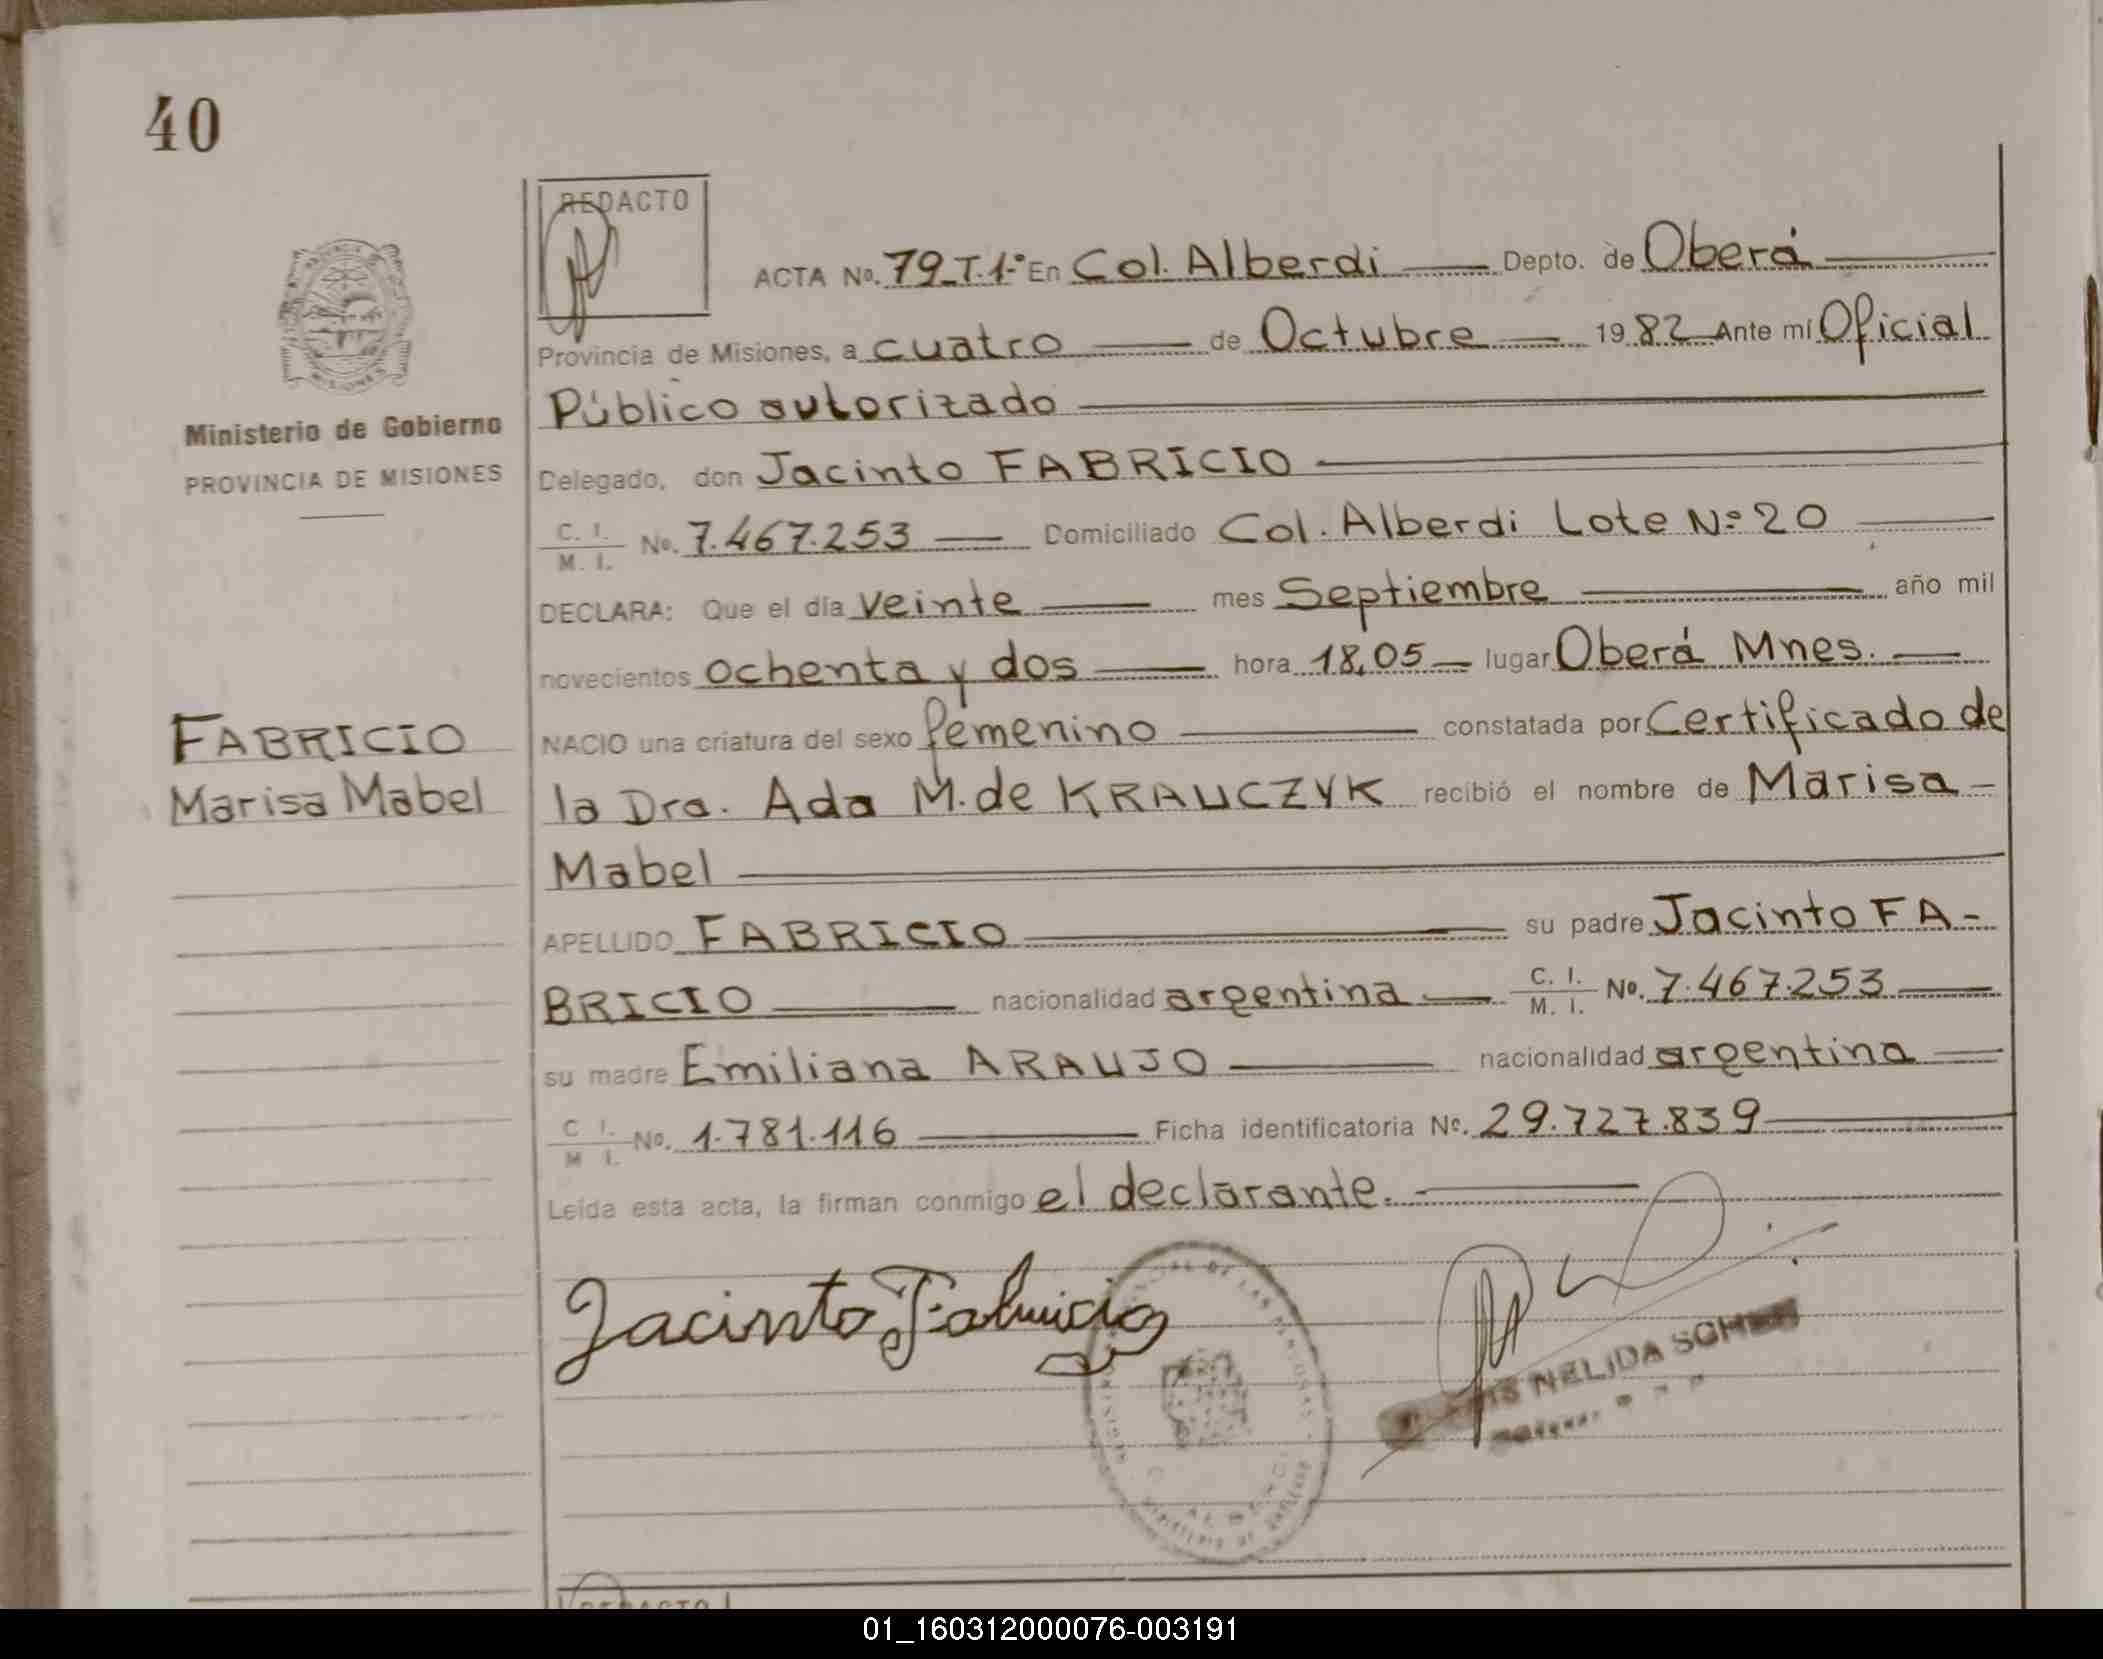 40
REDACTO
ACTA No. 79_T.1.° En Col. Alberdi Depto. de Oberá
Provincia de Misiones, a cuatro de Octubre 1982 Ante mí Oficial
Público autorizado
Ministerio de Gobierno
PROVINCIA DE MISIONES
Delegado, don Jacinto FABRICIO
C. I. / M. I. No. 7.467.253 Domiciliado Col. Alberdi Lote Nº 20
DECLARA: Que el día veinte mes Septiembre año mil
novecientos ochenta y dos hora 18,05 lugar Oberá Mnes.
FABRICIO
Marisa Mabel
NACIO una criatura del sexo femenino constatada por Certificado de
la Dra. Ada M. de KRAUCZYK recibió el nombre de Marisa
Mabel
APELLIDO FABRICIO su padre Jacinto FA-
BRICIO nacionalidad argentina C. I. / M. I. No. 7.467.253
su madre Emiliana ARAUJO nacionalidad argentina
C. I. / M. I. No. 1.781.116 Ficha identificatoria No. 29.727.839
Leída esta acta, la firman conmigo el declarante.
Jacinto Fabricio
NELIDA
REDACTO
01_160312000076-003191